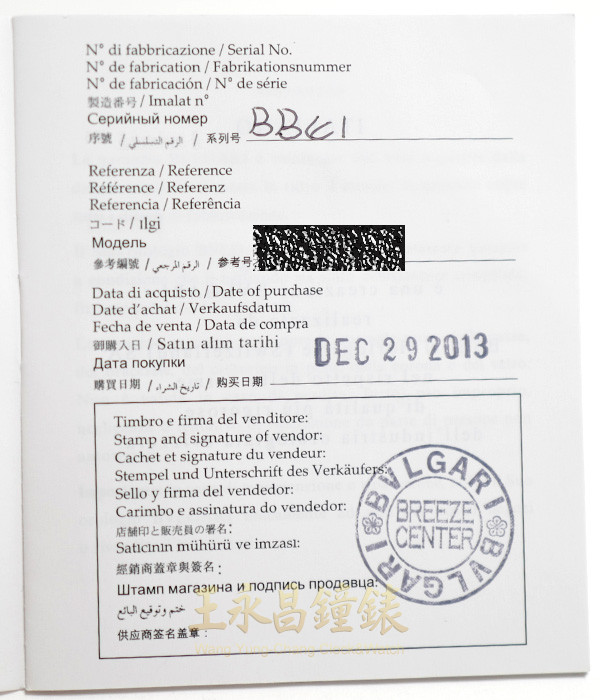 N° di fabbricazione / Serial No.
N° de fabrication / Fabrikationsnummer
N° de fabricación / N° de série
製造番号 / Imalat n°
Серийный номер
序號 / الرقم التسلسلي / 系列号
Referenza / Reference
Référence / Referenz
Referencia / Referência
コード / Ilgi
Модель
參考編號 / الرقم المرجعي / 参考号
Data di acquisto / Date of purchase
Date d'achat / Verkaufsdatum
Fecha de venta / Data de compra
御購入日 / Satın alım tarihi
DEC 29 2013
Дата покупки
購買日期 / تاريخ الشراء / 购买日期
Timbro e firma del venditore:
Stamp and signature of vendor:
Cachet et signature du vendeur:
Stempel und Unterschrift des Verkäufers:
Sello y firma del vendedor:
Carimbo e assinatura do vendedor:
店舗印と販売員の署名:
Satıcının mühürü ve imzası:
經銷商蓋章與簽名:
Штамп магазина и подпись продавца:
ختم وتوقيع البائع
供应商签名盖章:
BVLGARI
BREEZE
CENTER
BVLGARI
王永昌鐘錶